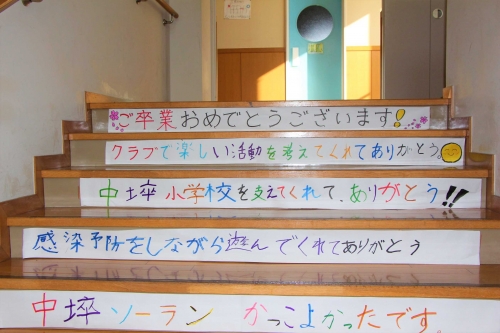 ご卒業おめでとうございます!
クラブで楽しい活動を考えてくれてありがとう。
中埣小学校を支えてくれて、ありがとう!!
感染予防をしながら遊んでくれてありがとう
中埣ソーラン かっこよかったです。